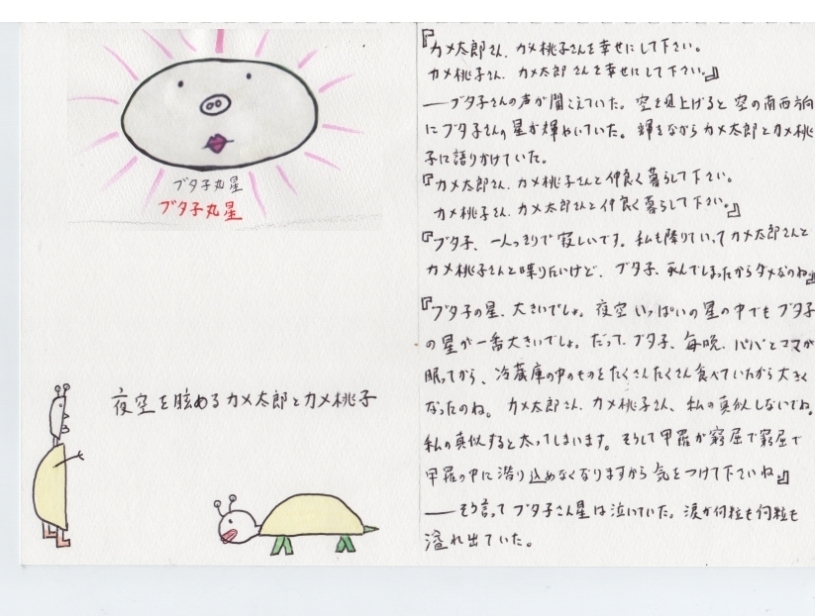 ブタ子丸星
ブタ子丸星
夜空を眩めるカメ太郎とカメ桃子
『カメ太郎さん、カメ桃子さんを幸せにして下さい。
カメ桃子さん、カメ太郎さんを幸せにして下さい。』
――ブタ子さんの声が聞こえていた。空を見上げると空の南西方向
にブタ子さんの星が輝やいていた。輝きながらカメ太郎とカメ桃
子に語りかけていた。
『カメ太郎さん、カメ桃子さんと仲良く暮らして下さい。
カメ桃子さん、カメ太郎さんと仲良く暮らして下さい。』
『ブタ子、一人っきりで寂しいです。私も降りていってカメ太郎さんと
カメ桃子さんと喋りたいけど、ブタ子、死んでしまったからダメなのね』
『ブタ子の星、大きいでしょ。夜空いっぱいの星の中でもブタ子
の星が一番大きいでしょ。だって、ブタ子、毎晩、パパとママが
眠ってから、冷蔵庫の中のものをたくさんたくさん食べていたから大きく
なったのね。カメ太郎さん、カメ桃子さん、私の真似しないでね。
私の真似すると太ってしまいます。そうして甲羅が窮屈で窮屈で
甲羅の中に潜り込めなくなりますから気をつけて下さいね』
――そう言ってブタ子さん星は泣いていた。涙が何粒も何粒も
溢れ出ていた。